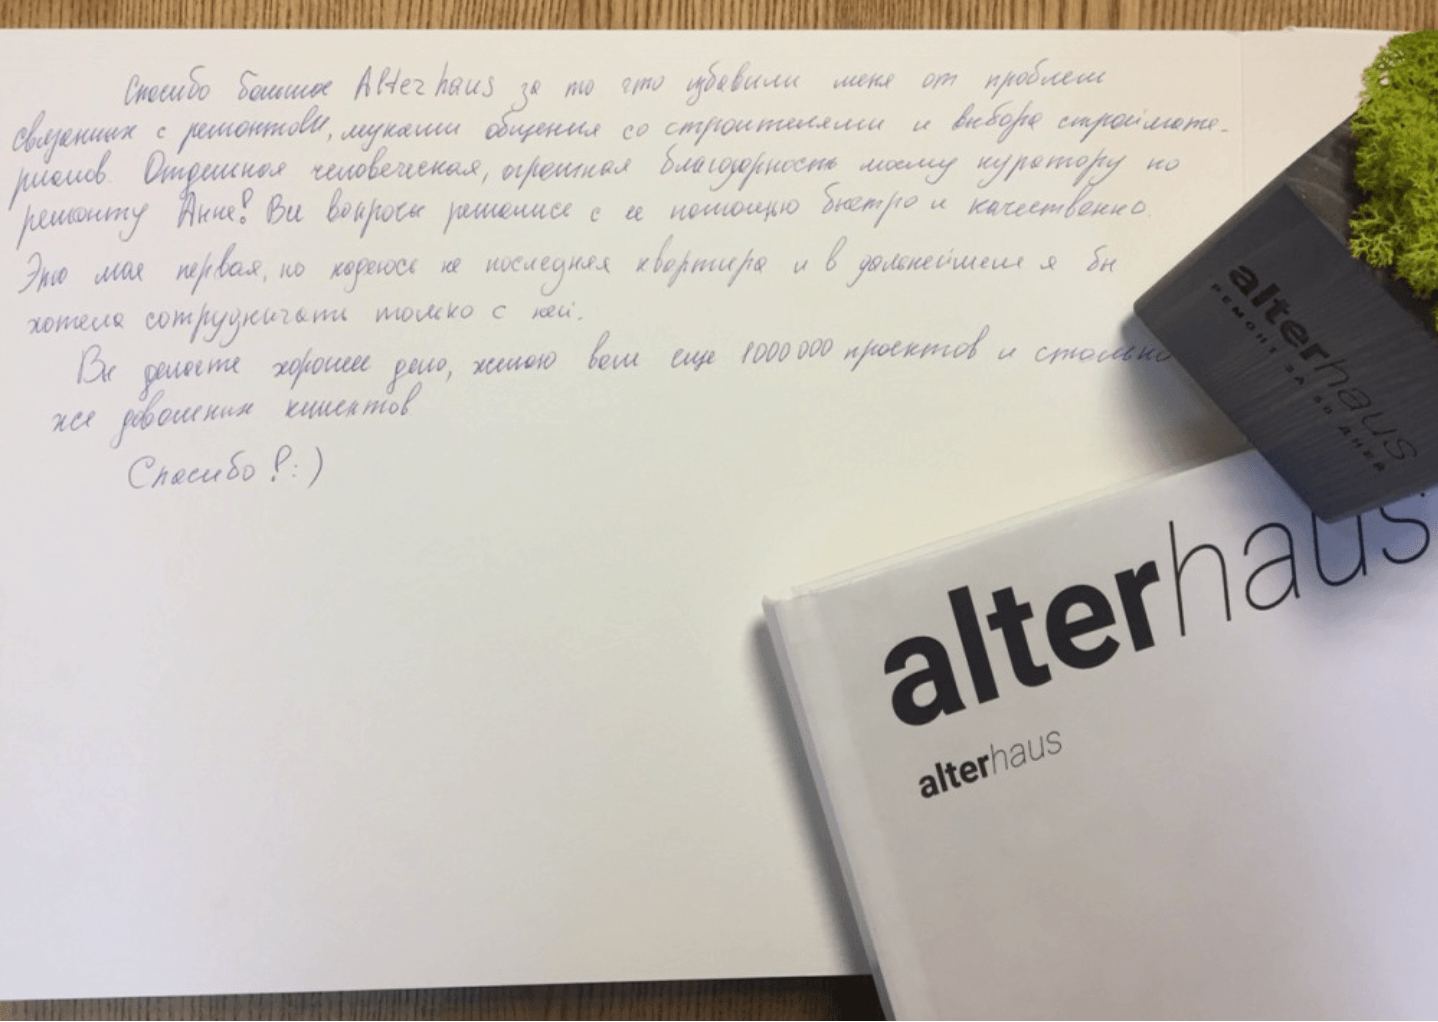 Спасибо большое Alterhaus за то что избавили меня от проблем
связанных с ремонтом, муками общения со строителями и выбора строймате-
риалов. Отдельная человеческая, огромная благодарность моему куратору по
ремонту Анне! Все вопросы решались с ее помощью быстро и качественно.
Это моя первая, но надеюсь не последняя квартира и в дальнейшем я бы
хотела сотрудничать только с ней.
Вы делаете хорошее дело, желаю вам еще 1000000 проектов и столько
же довольных клиентов
Спасибо!:)
alterhaus
РЕМОНТ ЗА 80 ДНЕЙ
alterhaus
alterhaus